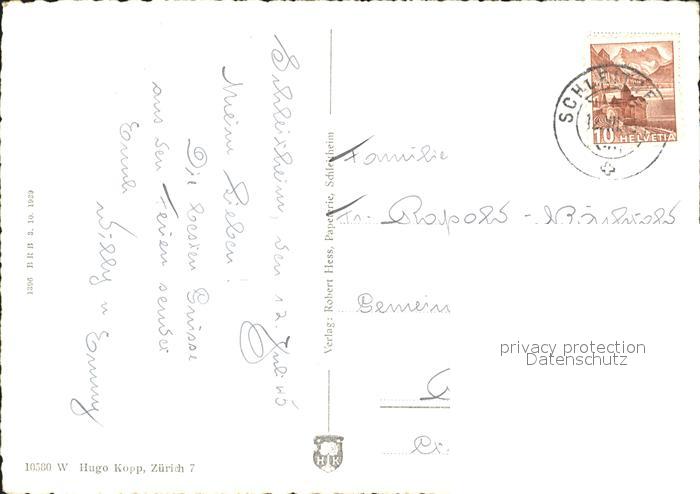 Schleitheim, den 12. Juli 43
Meine Lieben!
Die besten Grüsse
aus den Ferien sendet
Euch
Willy u Emmy
1396 BRB 3. 10. 1939
10580 W Hugo Kopp, Zürich 7
Verlag: Robert Hess, Papeterie, Schleitheim
HK
SCHLEITHE
10 HELVETIA
Familie
Fr. Rapold -
Gemein
privacy protection
Datenschutz